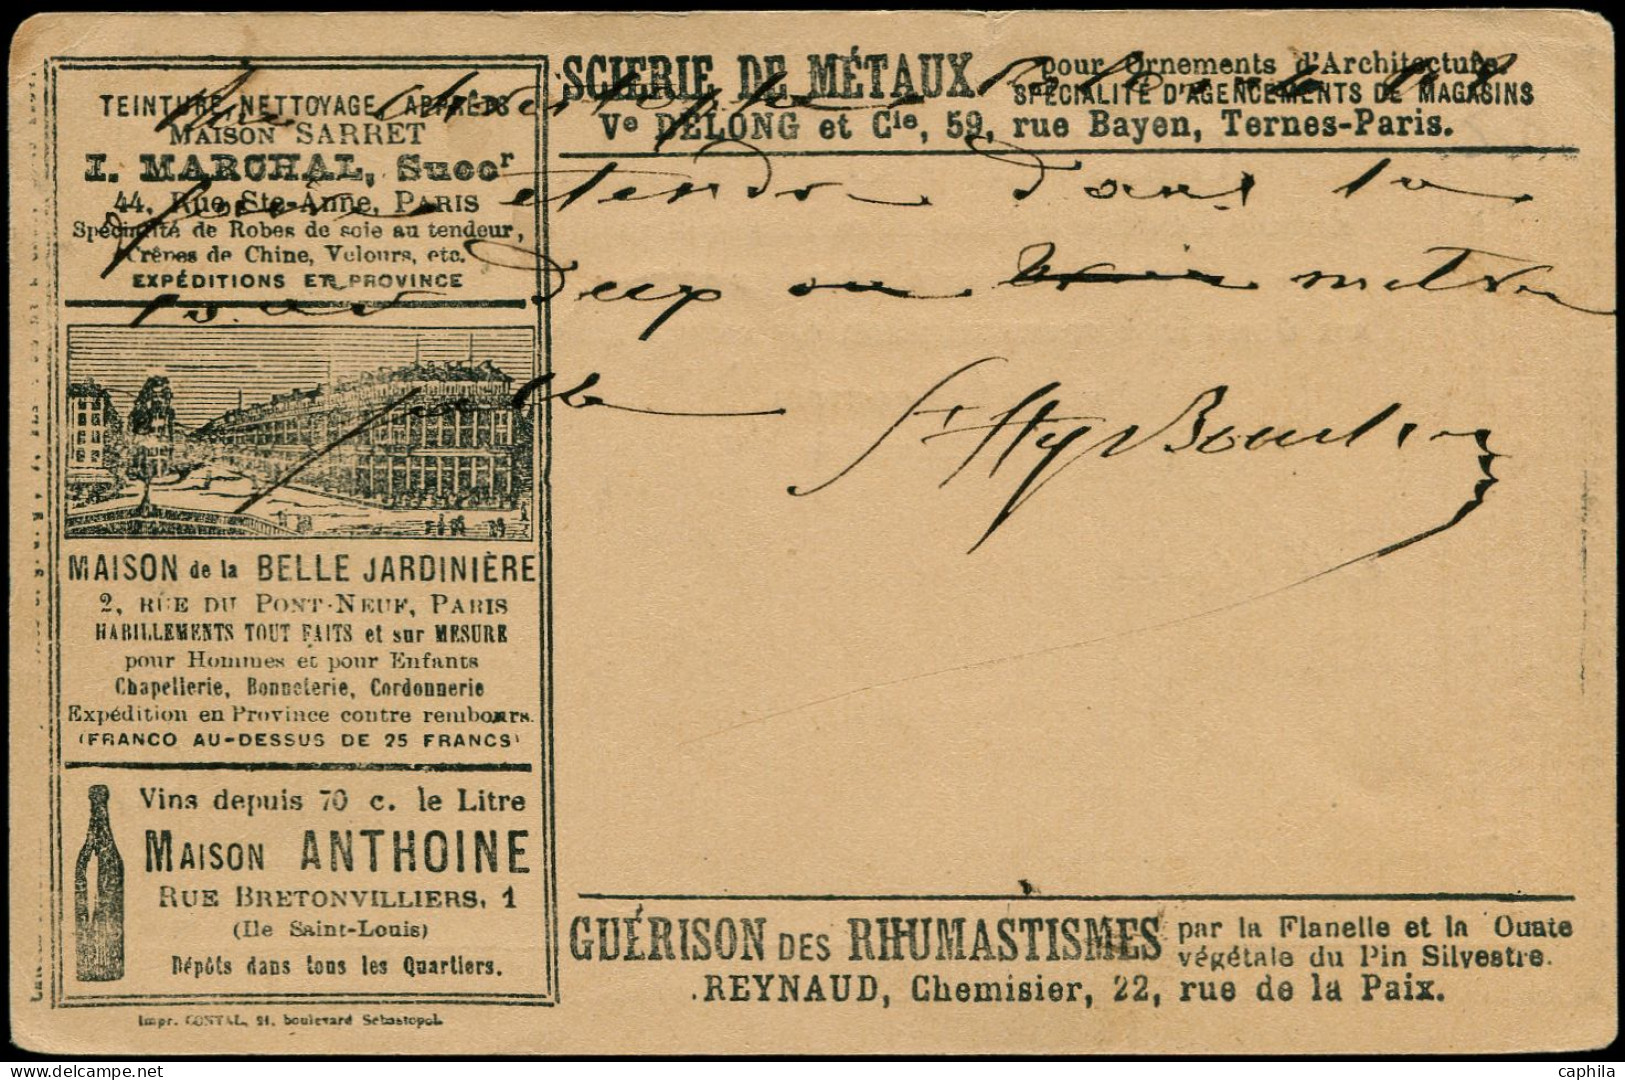 TEINTURE, NETTOYAGE, APPRÊTS
MAISON SARRET
I. MARCHAL, Succr
44, Rue Ste-Anne, PARIS
Spécialité de Robes de soie au tendeur,
Crêpes de Chine, Velours, etc.
EXPÉDITIONS EN PROVINCE
MAISON de la BELLE JARDINIÈRE
2, RUE DU PONT-NEUF, PARIS
HABILLEMENTS TOUT FAITS et sur MESURE
pour Hommes et pour Enfants
Chapellerie, Bonneterie, Cordonnerie
Expédition en Province contre rembours.
(FRANCO AU-DESSUS DE 25 FRANCS)
Vins depuis 70 c. le Litre
MAISON ANTHOINE
RUE BRETONVILLIERS, 1
(Ile Saint-Louis)
Dépôts dans tous les Quartiers.
Impr. CONTAL, 21, boulevard Sébastopol.
SCIERIE DE MÉTAUX pour Ornements d'Architecture.
SPÉCIALITÉ D'AGENCEMENTS DE MAGASINS
Ve DELONG et Cie, 59, rue Bayen, Ternes-Paris.
étendre dans la
deux ou metre
GUÉRISON DES RHUMASTISMES par la Flanelle et la Ouate
végétale du Pin Silvestre.
REYNAUD, Chemisier, 22, rue de la Paix.
caphila